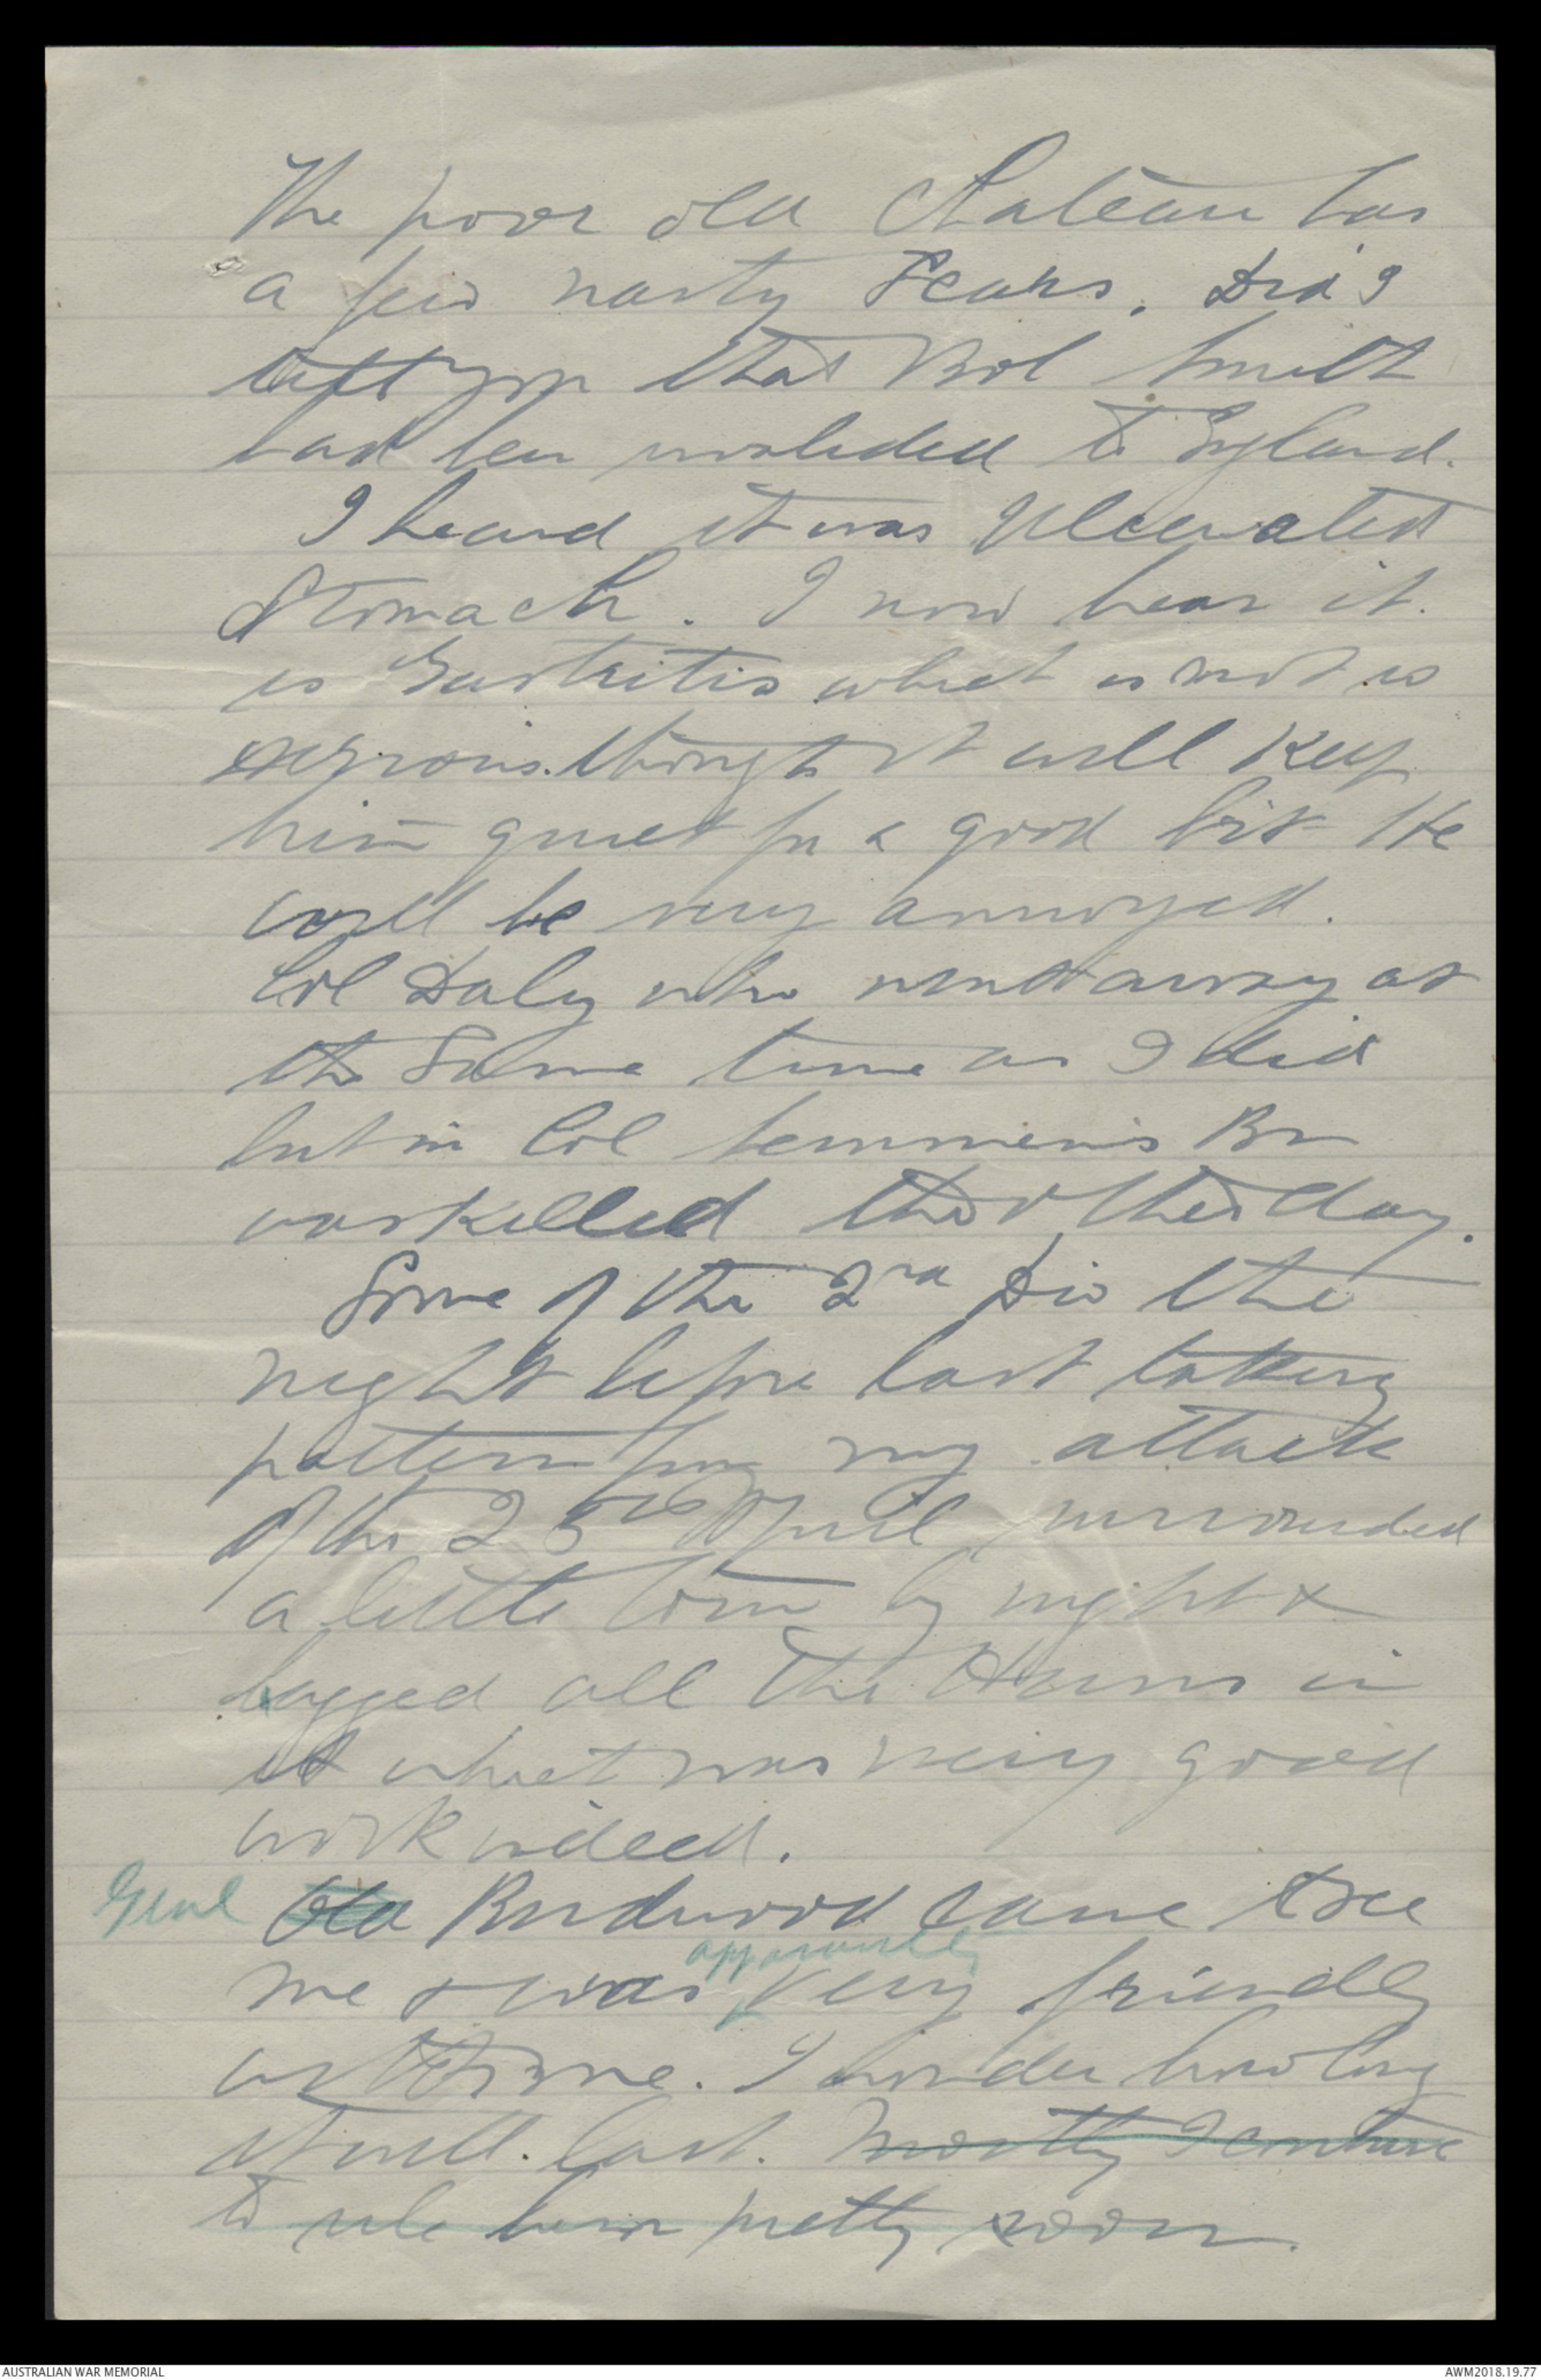 The poor old Chateau has
a few nasty scars. Did I
tell you that Bob Smith
had been invalided to England.
I heard it was Ulcerated
Stomach. I now hear it
is Gastritis which is not so
serious. though it will keep
him quiet for a good bit He
will be very annoyed.
Col Daly who went away at
the same time as I did
but in Col Bn
was killed the other day.
Some of the 2nd Div the
night before last taking
pattern from my attack
of the 25th April surrounded
a little town by night &
bagged all the Huns in
it which was very good
work indeed.
Genl Old Birdwood came to see
me & was apparently very friendly
I wonder how long
it will last. Mostly I contrive
to rile him pretty soon.
AUSTRALIAN WAR MEMORIAL
AWM2018.19.77